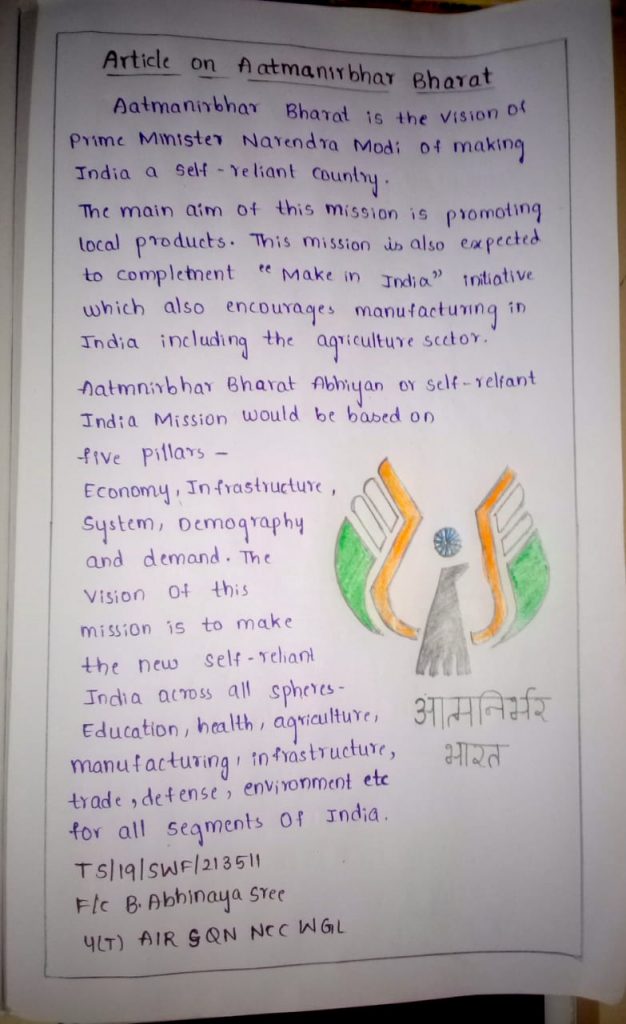 Article on Aatmanirbhar Bharat
Aatmanirbhar Bharat is the vision of
Prime Minister Narendra Modi of making
India a self-reliant country.
The main aim of this mission is promoting
local products. This mission is also expected
to completnent "Make in India" initiative
which also encourages manufacturing in
India including the agriculture sector.
Aatmnirbhar Bharat Abhiyan or self-reliant
India Mission would be based on
five pillars -
Economy, Infrastructure,
System, Demography
and demand. The
vision of this
mission is to make
the new self-reliant
India across all spheres-
Education, health, agriculture,
manufacturing, infrastructure,
trade, defense, environment etc
for all segments of India.
आत्मनिर्भर
भारत
TS/19/SWF/213511
F/c B. Abhinaya Sree
4(T) AIR SQN NCC WGL